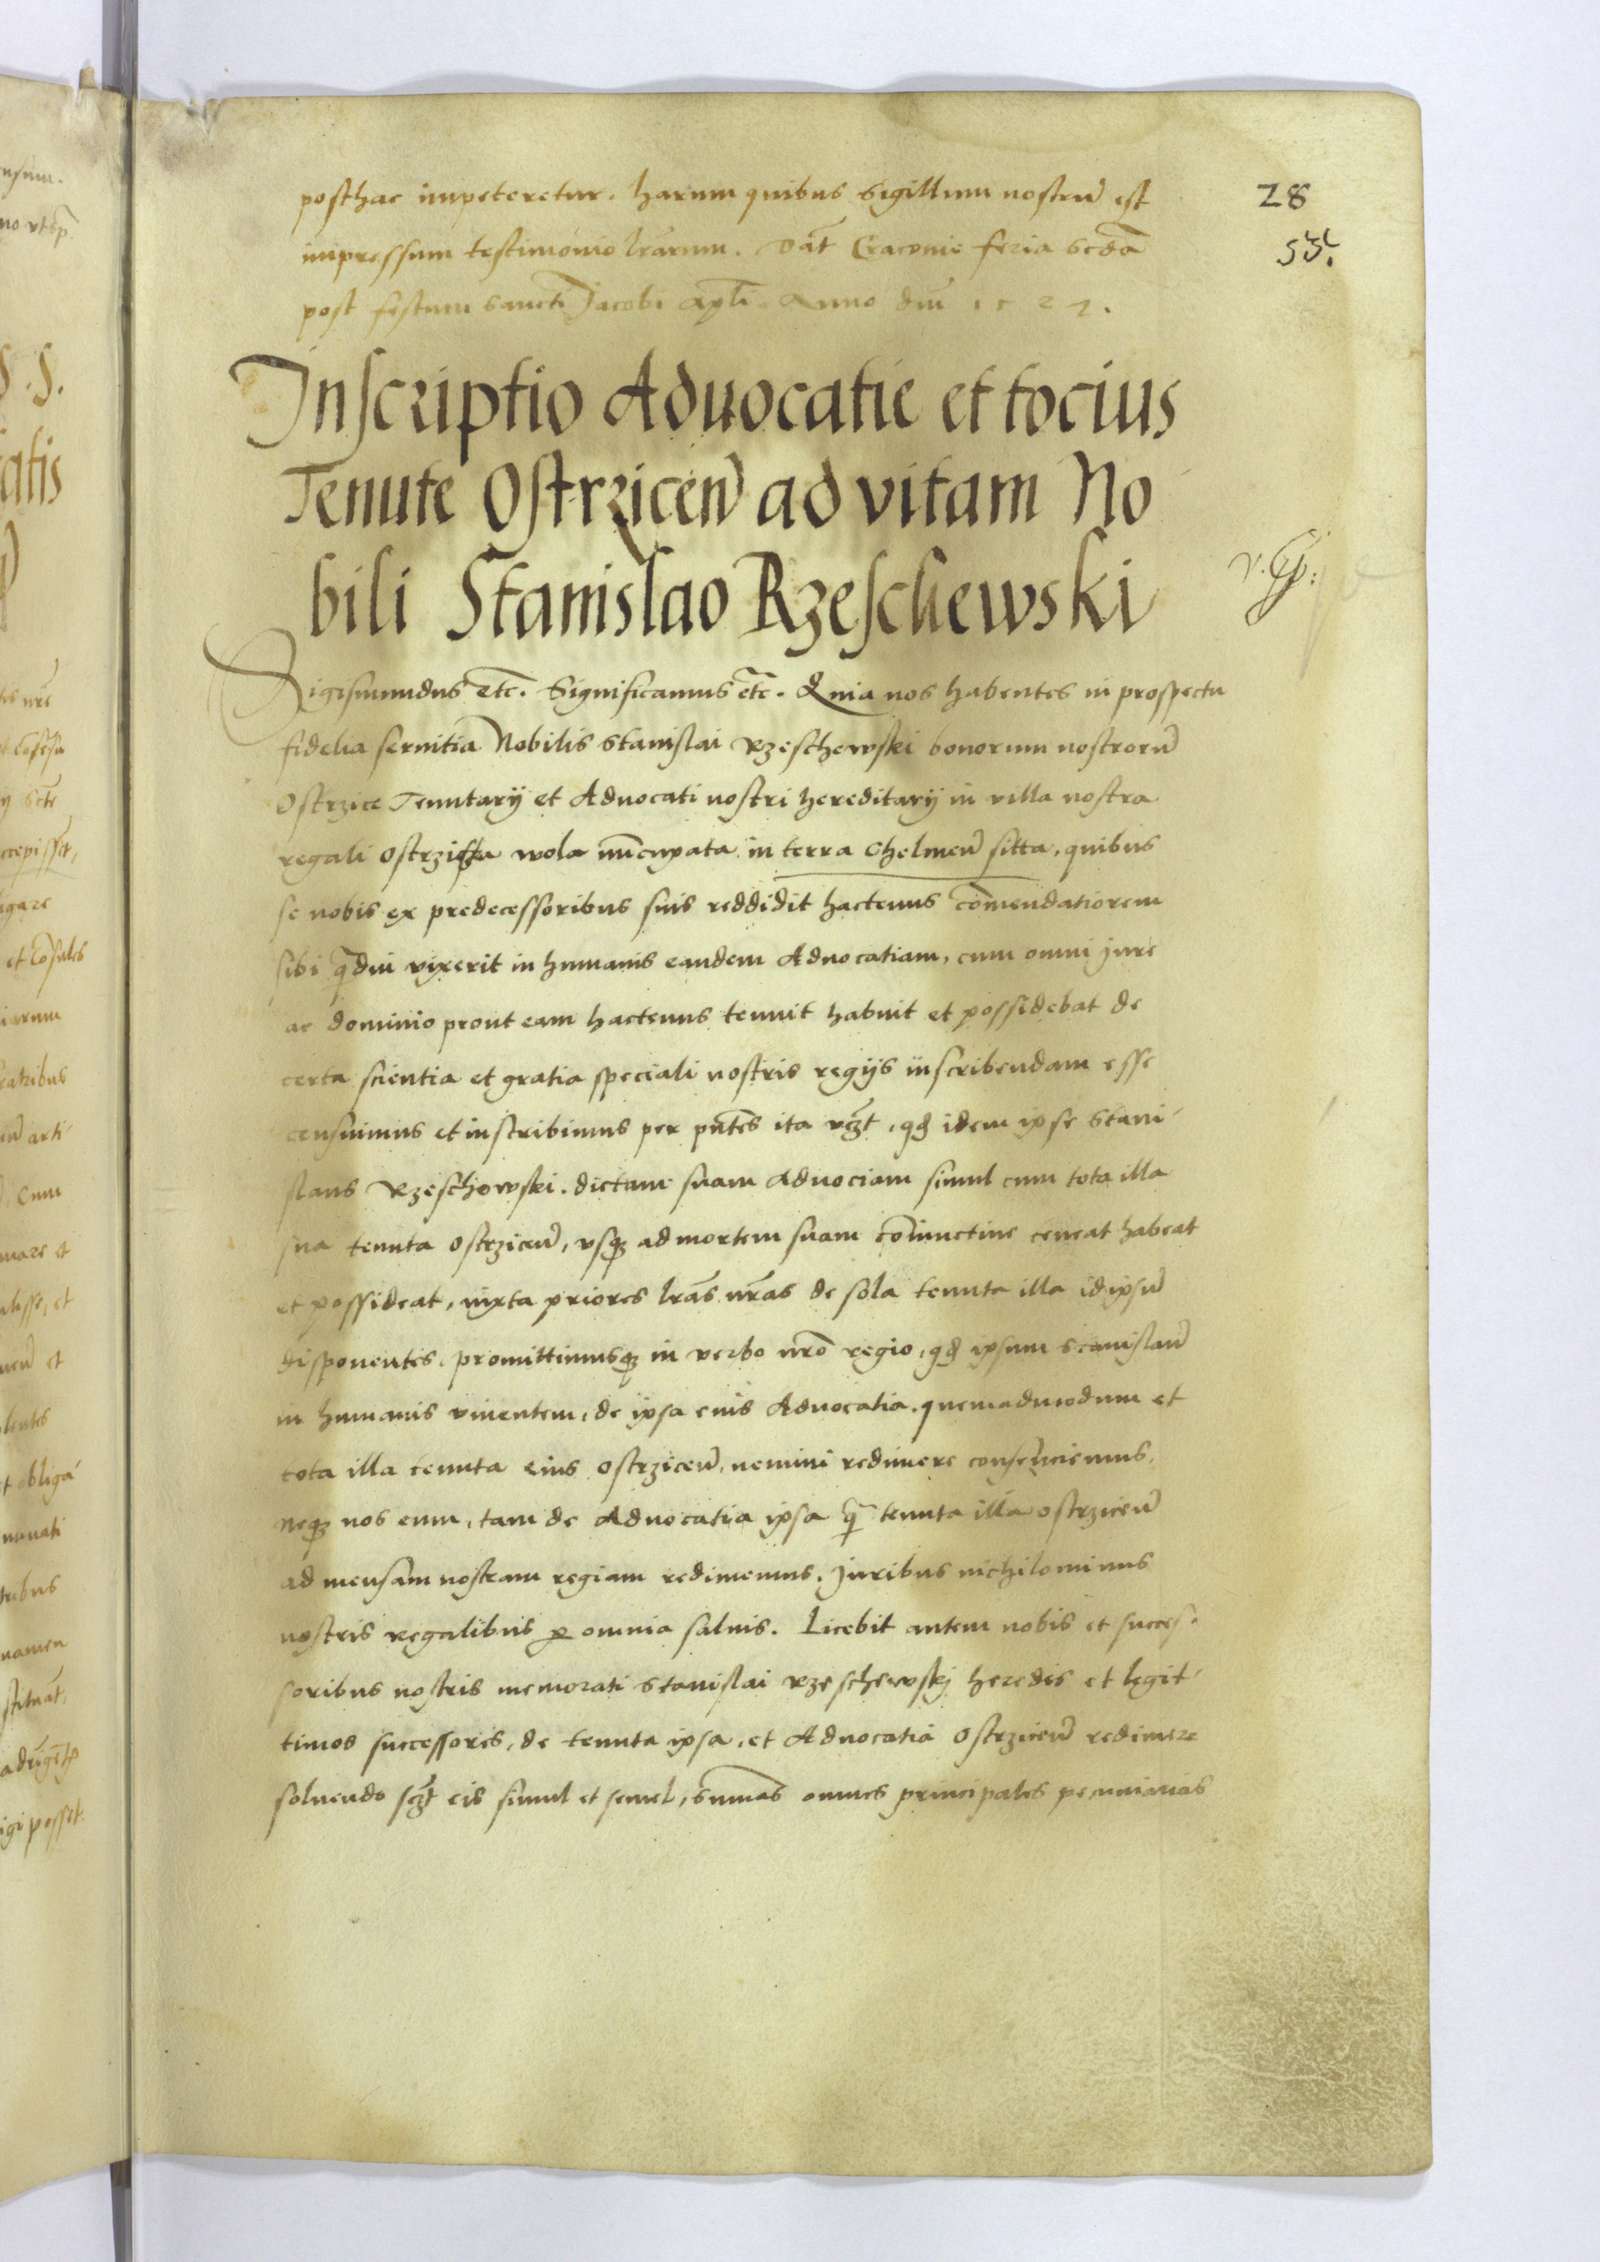 posthac impeteretur. harum quibus Sigillum nostrũ est
impressum testimonio lrarum. Dat̃ Cracovie feria scda
post festum sancti Jacobi Apl̃i Anno dnĩ 1521.
28
Inscriptio Advocatie et tocius
Tenute Ostrzicen̄ ad vitam No
bili Stanislao Rzeschewski
Sigismundus etc̃. Significamus etc̃. Quia nos habentes in prospectu
fidelia servitia Nobilis Stanislai Rzeschewski bonorum nostrorũ
Ostrzice Tenutarij et Advocati nostri hereditarij in villa nostra
regali Ostrziczka wola nũcupata in terra Chelmen̄ sitta, quibus
se nobis ex predecessoribus suis reddidit hactenus com̃endatiorem
sibi q̃diu vixerit in humanis eandem Advocatiam, cum omni jure
ac dominio prout eam hactenus tenuit habuit et possidebat de
certa scientia et gratia speciali nostris regijs inscribendam esse
censuimus et inscribimus per pñtes ita vzt, qđ idem ipse Stani-
slaus Rzeschowski. dictam suam Advociam simul cum tota illa
sua tenuta Ostrzicen̄, vsqz ad mortem suam coniunctim teneat habeat
et possideat, iuxta priores lrãs nrãs de sola tenuta illa idipsũ
disponentes, promittimusqz in verbo nrõ regio, qđ ipsum Stanislaũ
in humanis viventem, de ipsa eius Advocatia. quemadmodum et
tota illa tenuta eius Ostrzicen̄, nemini redimere consenciemus,
neqz nos eum, tam de Advocatia ipsa q̃ tenuta illa Ostrzicen̄
ad mensam nostram regiam redimemus. Juribus nichilominus
nostris regalibus p omnia salvis. Licebit autem nobis et succes-
soribus nostris memorati Stanislai Rzeschewskj heredes et legit-
timos successores, de tenuta ipsa, et Advocatia Ostrzicen̄ redimere
solvendo szt eis simul et semel, sum̃as omnes principales pecuniarias